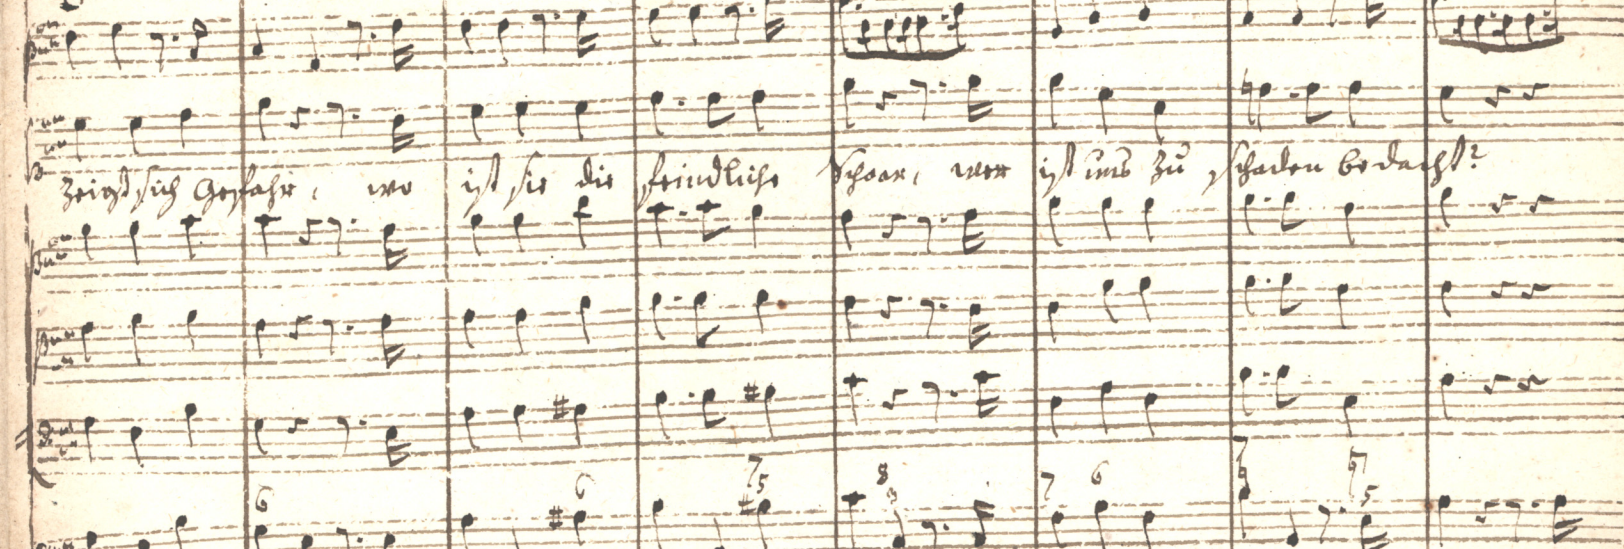 zeigt sich Gefahr, wo ist sie die feindliche Schaar, wer ist uns zu schaden bedacht?
6 6 7 5 8 3 7 6 7 5